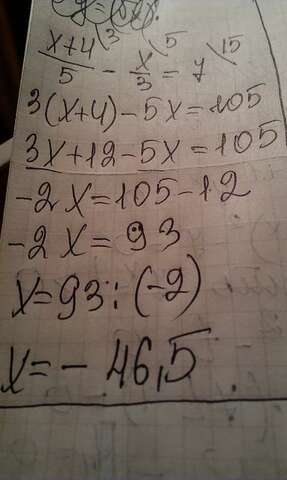 x+4/5 \3 - x/3 \5 = 7 \15
3(x+4)-5x=105
3x+12-5x=105
-2x=105-12
-2x=93
x=93:(-2)
x=-46,5